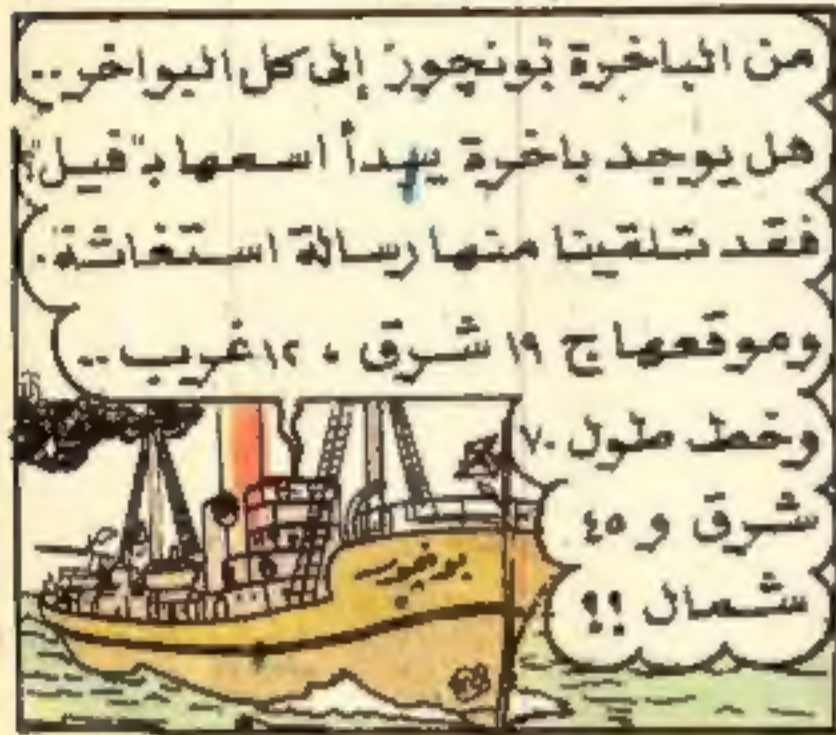 من الباخرة بونچور إلى كل البواخر..
هل يوجد باخرة يبدأ اسمها بـ"فيل"؟
فقد تلقينا منها رسالة استغاثة.
وموقعها ج ١٩ شرق ، ١٢ غريب..
وخط طول ٧٠
شرق و ٤٥
شمال !؟
بونچور